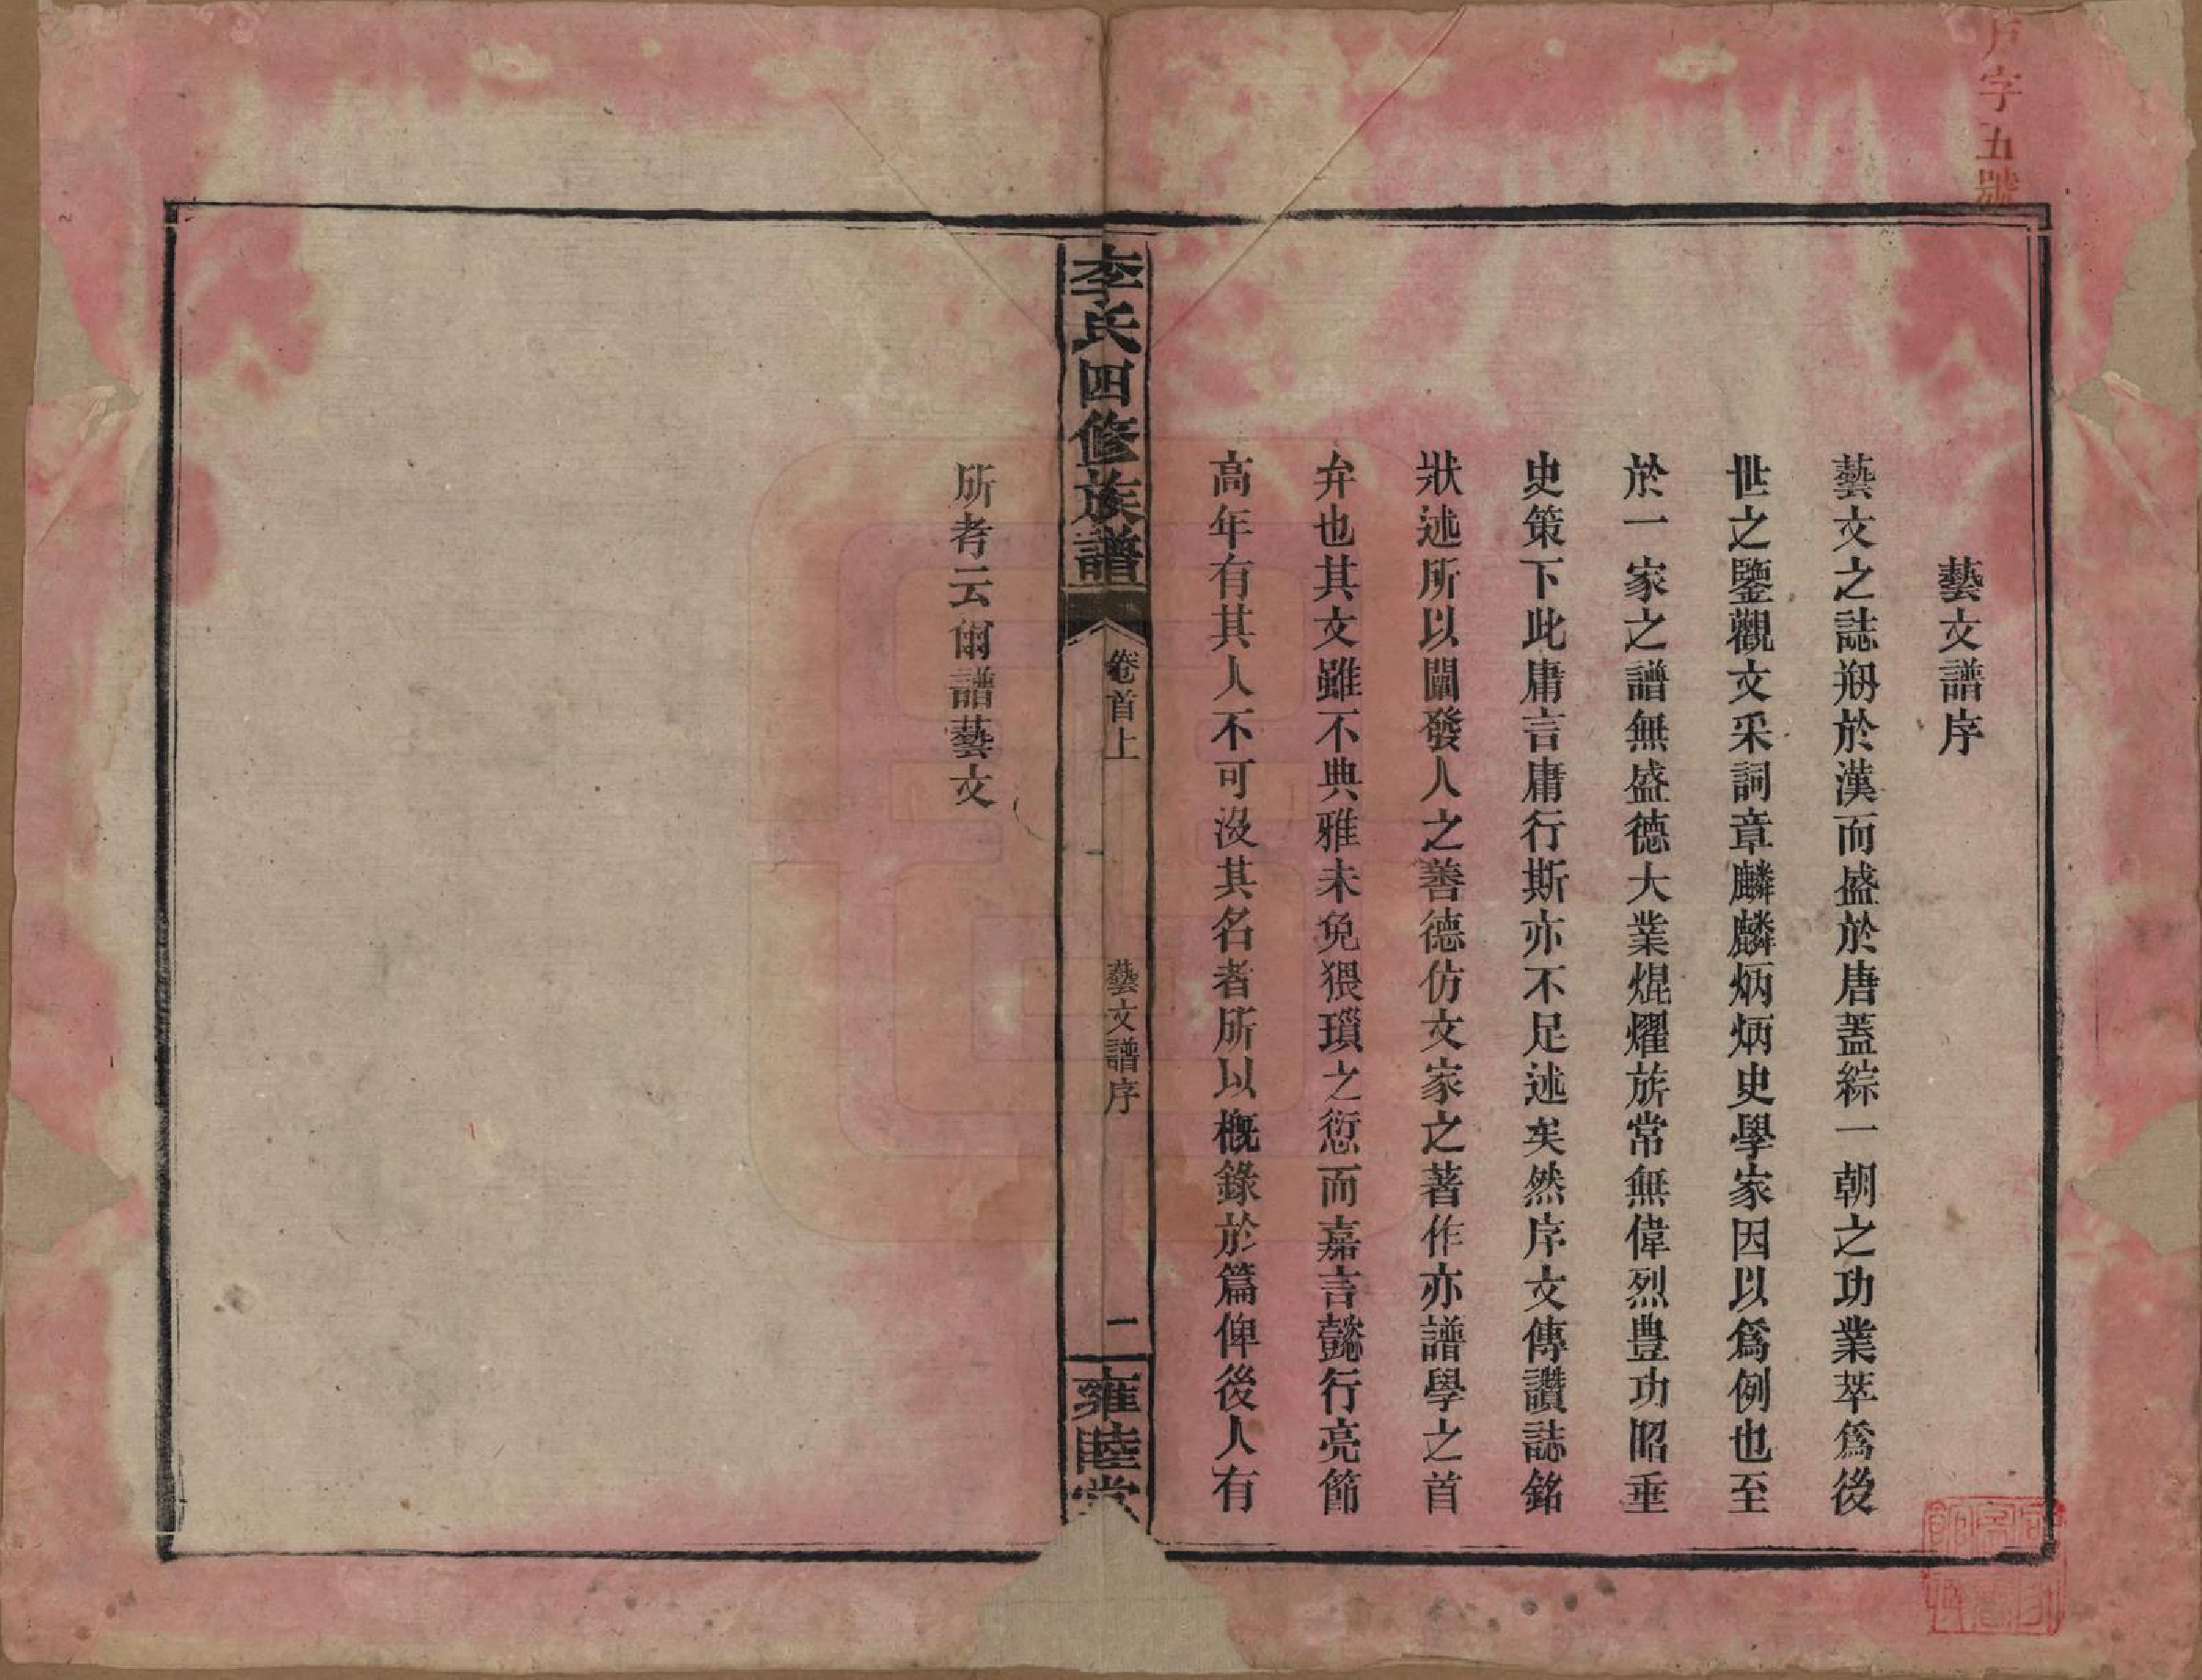 戸字五號
藝文譜序
藝文之誌剏於漢而盛於唐蓋綜一朝之功業萃爲後
世之鑒觀文采詞章麟麟炳炳史學家因以爲例也至
於一家之譜無盛德大業焜燿旂常無偉烈豊功昭垂
史策下此庸言庸行斯亦不足述矣然序文傳讚誌銘
狀述所以闡發人之善德仿文家之著作亦譜學之首
弁也其文雖不典雅未免猥瑣之愆而嘉言懿行亮節
高年有其人不可沒其名者所以概錄於篇俾後人有
李氏四修族譜
卷首上
藝文譜序
二
雍睦堂
所考云爾譜藝文